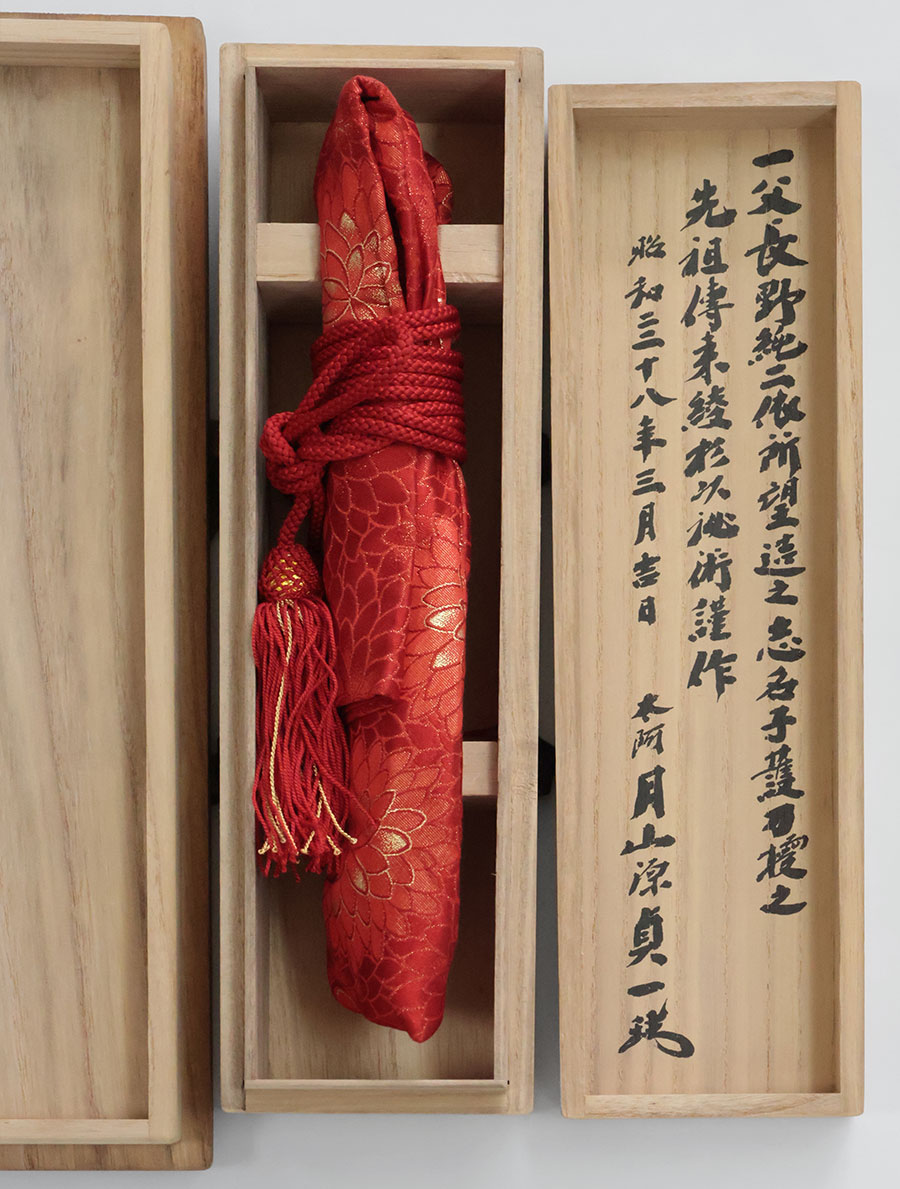 一父長野純二依所望造之志名子護刀授之
先祖傳来綾杉以秘術謹作
昭和三十八年三月吉日 太阿月山源貞一